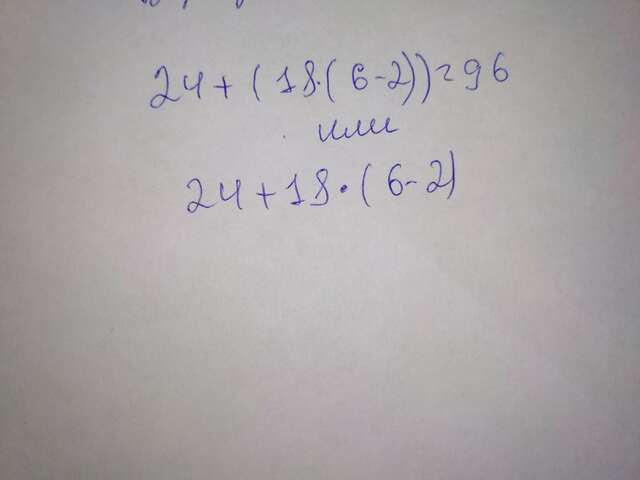 24+(18·(6-2))=96
или
24+18·(6-2)